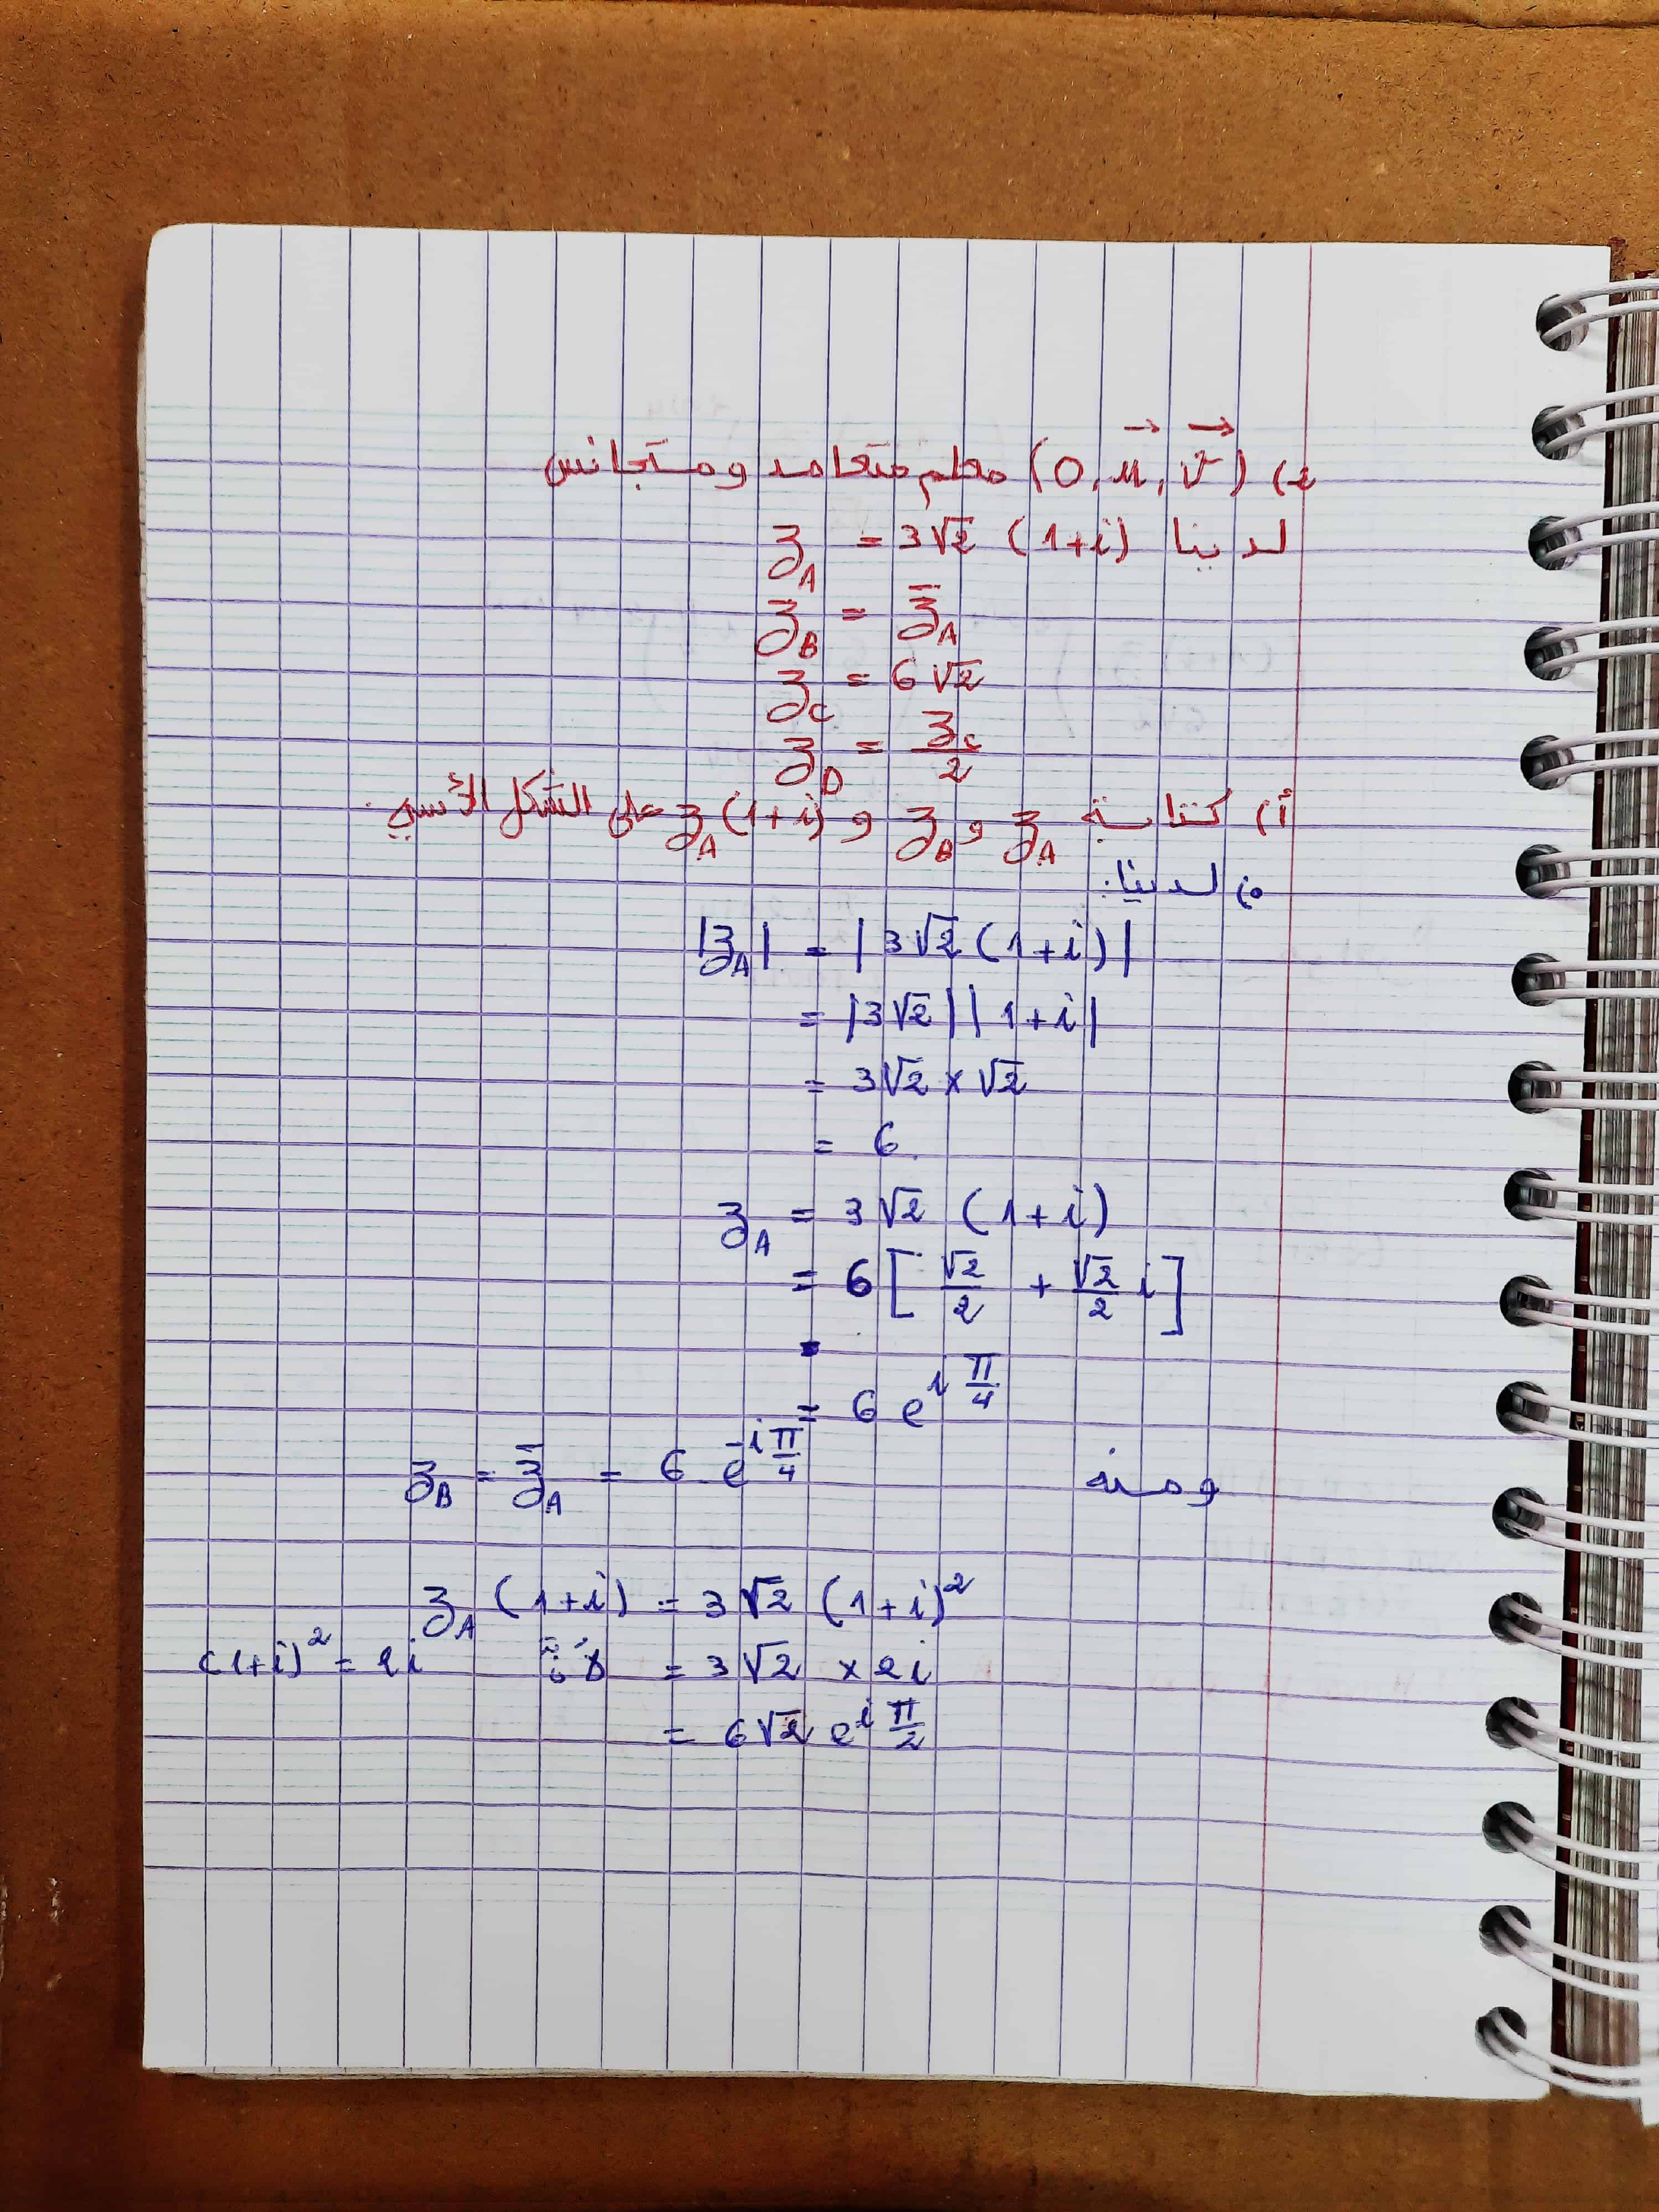 2) (O, u⃗, v⃗) معلم متعامد ومتجانس
لدينا z_A = 3√2 (1+i)
z_B = z̄_A
z_C = 6√2
z_D = z_C/2
أ) كتابة z_A و z_B و z_A(1+i) على الشكل الأسي.
لدينا:
|z_A| = |3√2 (1+i)|
= |3√2| |1+i|
= 3√2 × √2
= 6
z_A = 3√2 (1+i)
= 6 [√2/2 + √2/2 i]
= 6 e^{i π/4}
ومنه z_B = z̄_A = 6 e^{-i π/4}
z_A (1+i) = 3√2 (1+i)²
= 3√2 × 2i لأن (1+i)² = 2i
= 6√2 e^{i π/2}